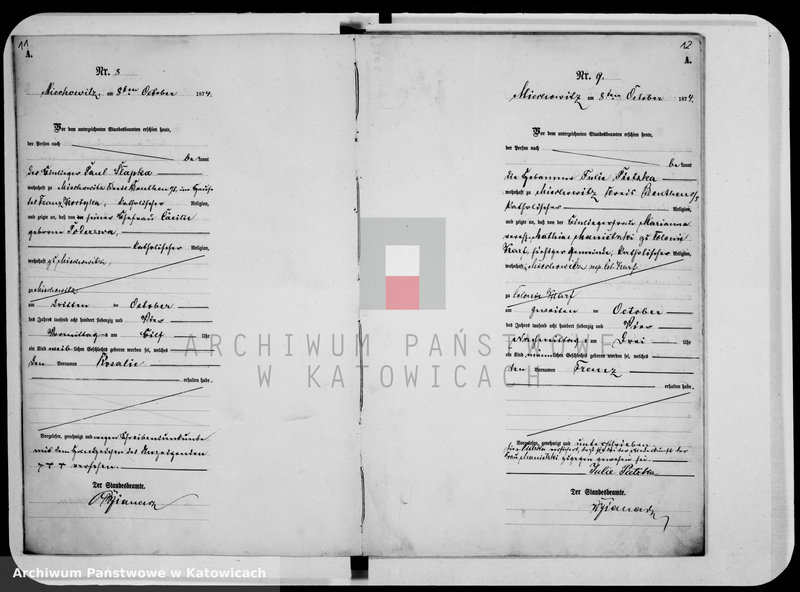 11
A.
Nr. 8
Miechowitz, am 8ten October 1874.
Vor dem unterzeichneten Standesbeamten erschien heute,
der Person nach
be kannt
der Einlieger Paul Slapka
wohnhaft zu Miechowitz Kreis Beuthen O/S, im Hause
des Franz
katholischer Religion,
und zeigte an, daß von seiner Ehefrau Cäcilie
geborene
katholischer Religion,
wohnhaft zu Miechowitz,
zu Miechowitz
am dritten ten October
des Jahres tausend acht hundert siebenzig und Vier
Vormittags um Eilf Uhr
ein Kind weiblichen Geschlechts geboren worden sei, welches
den Vornamen Rosalie
erhalten habe.
Vorgelesen, genehmigt und wegen Schreibensunkunde
mit dem Handzeichen des Anzeigenden
+++ versehen.
Der Standesbeamte.
12
A.
Nr. 9.
Miechowitz am 8ten October 1874.
Vor dem unterzeichneten Standesbeamten erschien heute,
der Person nach
be kannt
die Hebamme Julie Pietzka
wohnhaft zu Miechowitz Kreis Beuthen O/S
katholischer Religion,
und zeigte an, daß von der Einliegerfrau Marianna
zu Colonie
Karf, hiesiger Gemeinde, katholischer Religion,
wohnhaft zu Miechowitz resp. Col. Karf
zu Colonie Karf
am zweiten ten October
des Jahres tausend acht hundert siebenzig und Vier
Nachmittags um Drei Uhr
ein Kind männlichen Geschlechts geboren worden sei, welches
den Vornamen Franz
erhalten habe.
Vorgelesen, genehmigt und unterschrieben.
Julie Pietzka
Der Standesbeamte.
ARCHIWUM PAŃSTWOWE
W KATOWICACH
Archiwum Państwowe w Katowicach